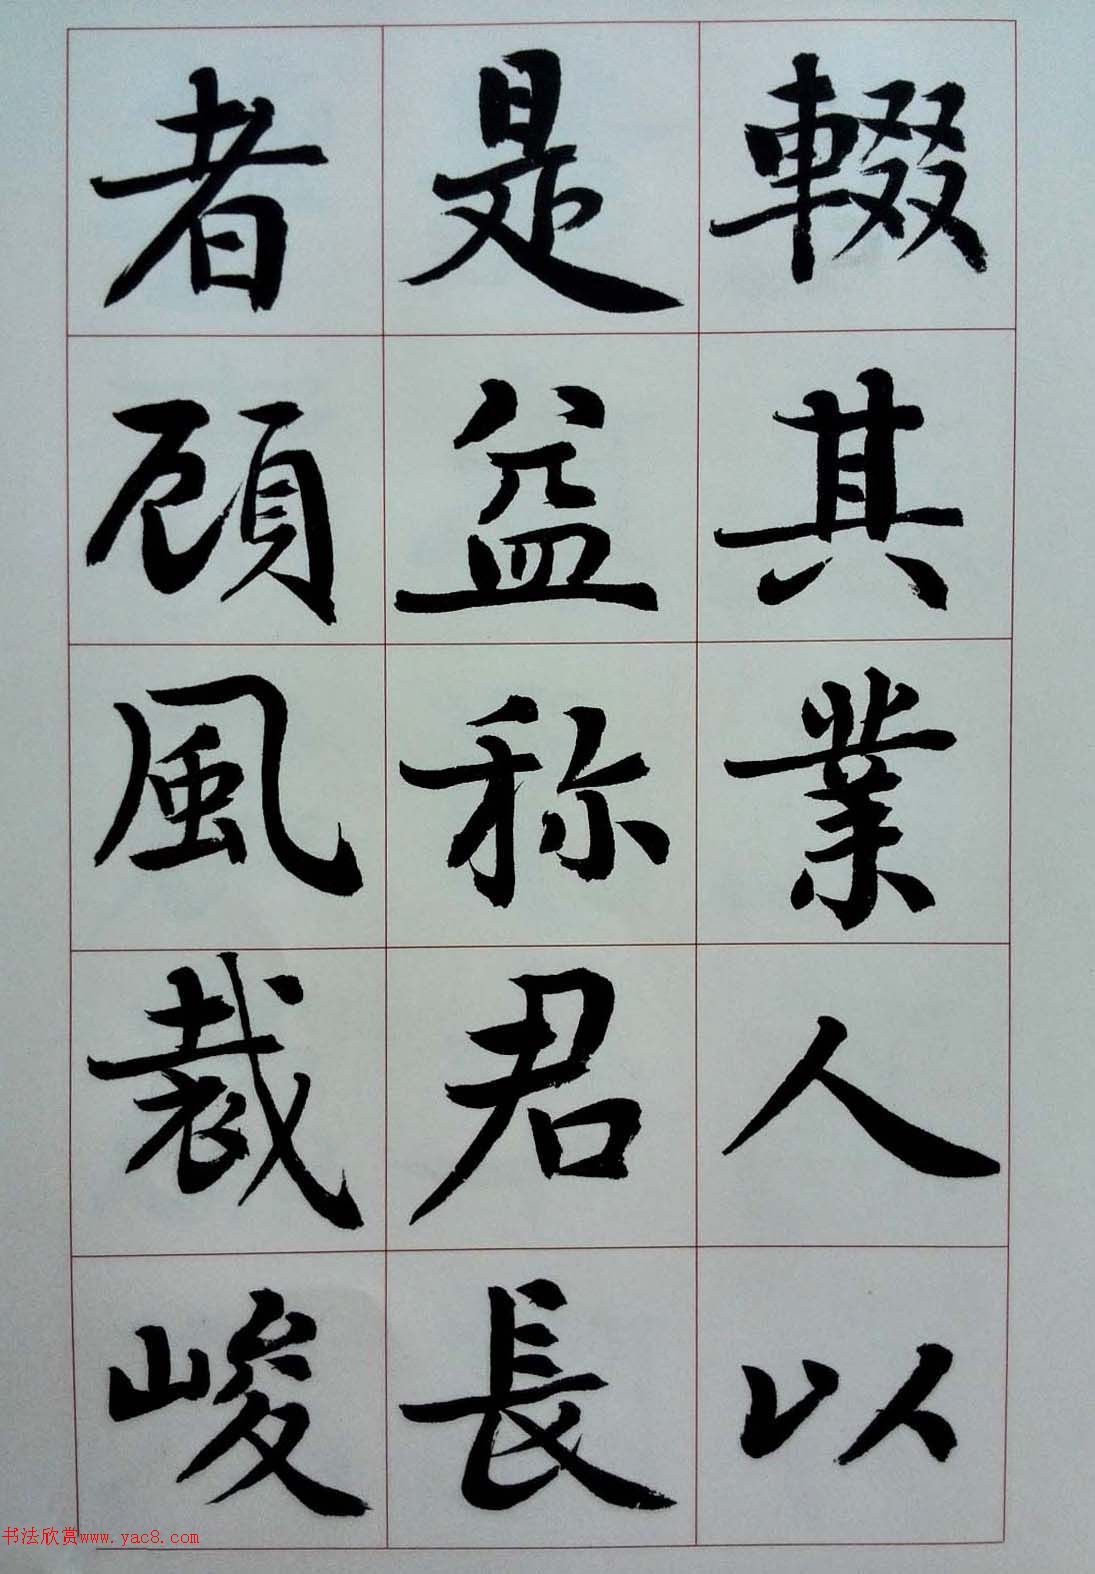 輟其業人以
是益称君長
者顾風裁峻
书法欣赏www.yac8.com